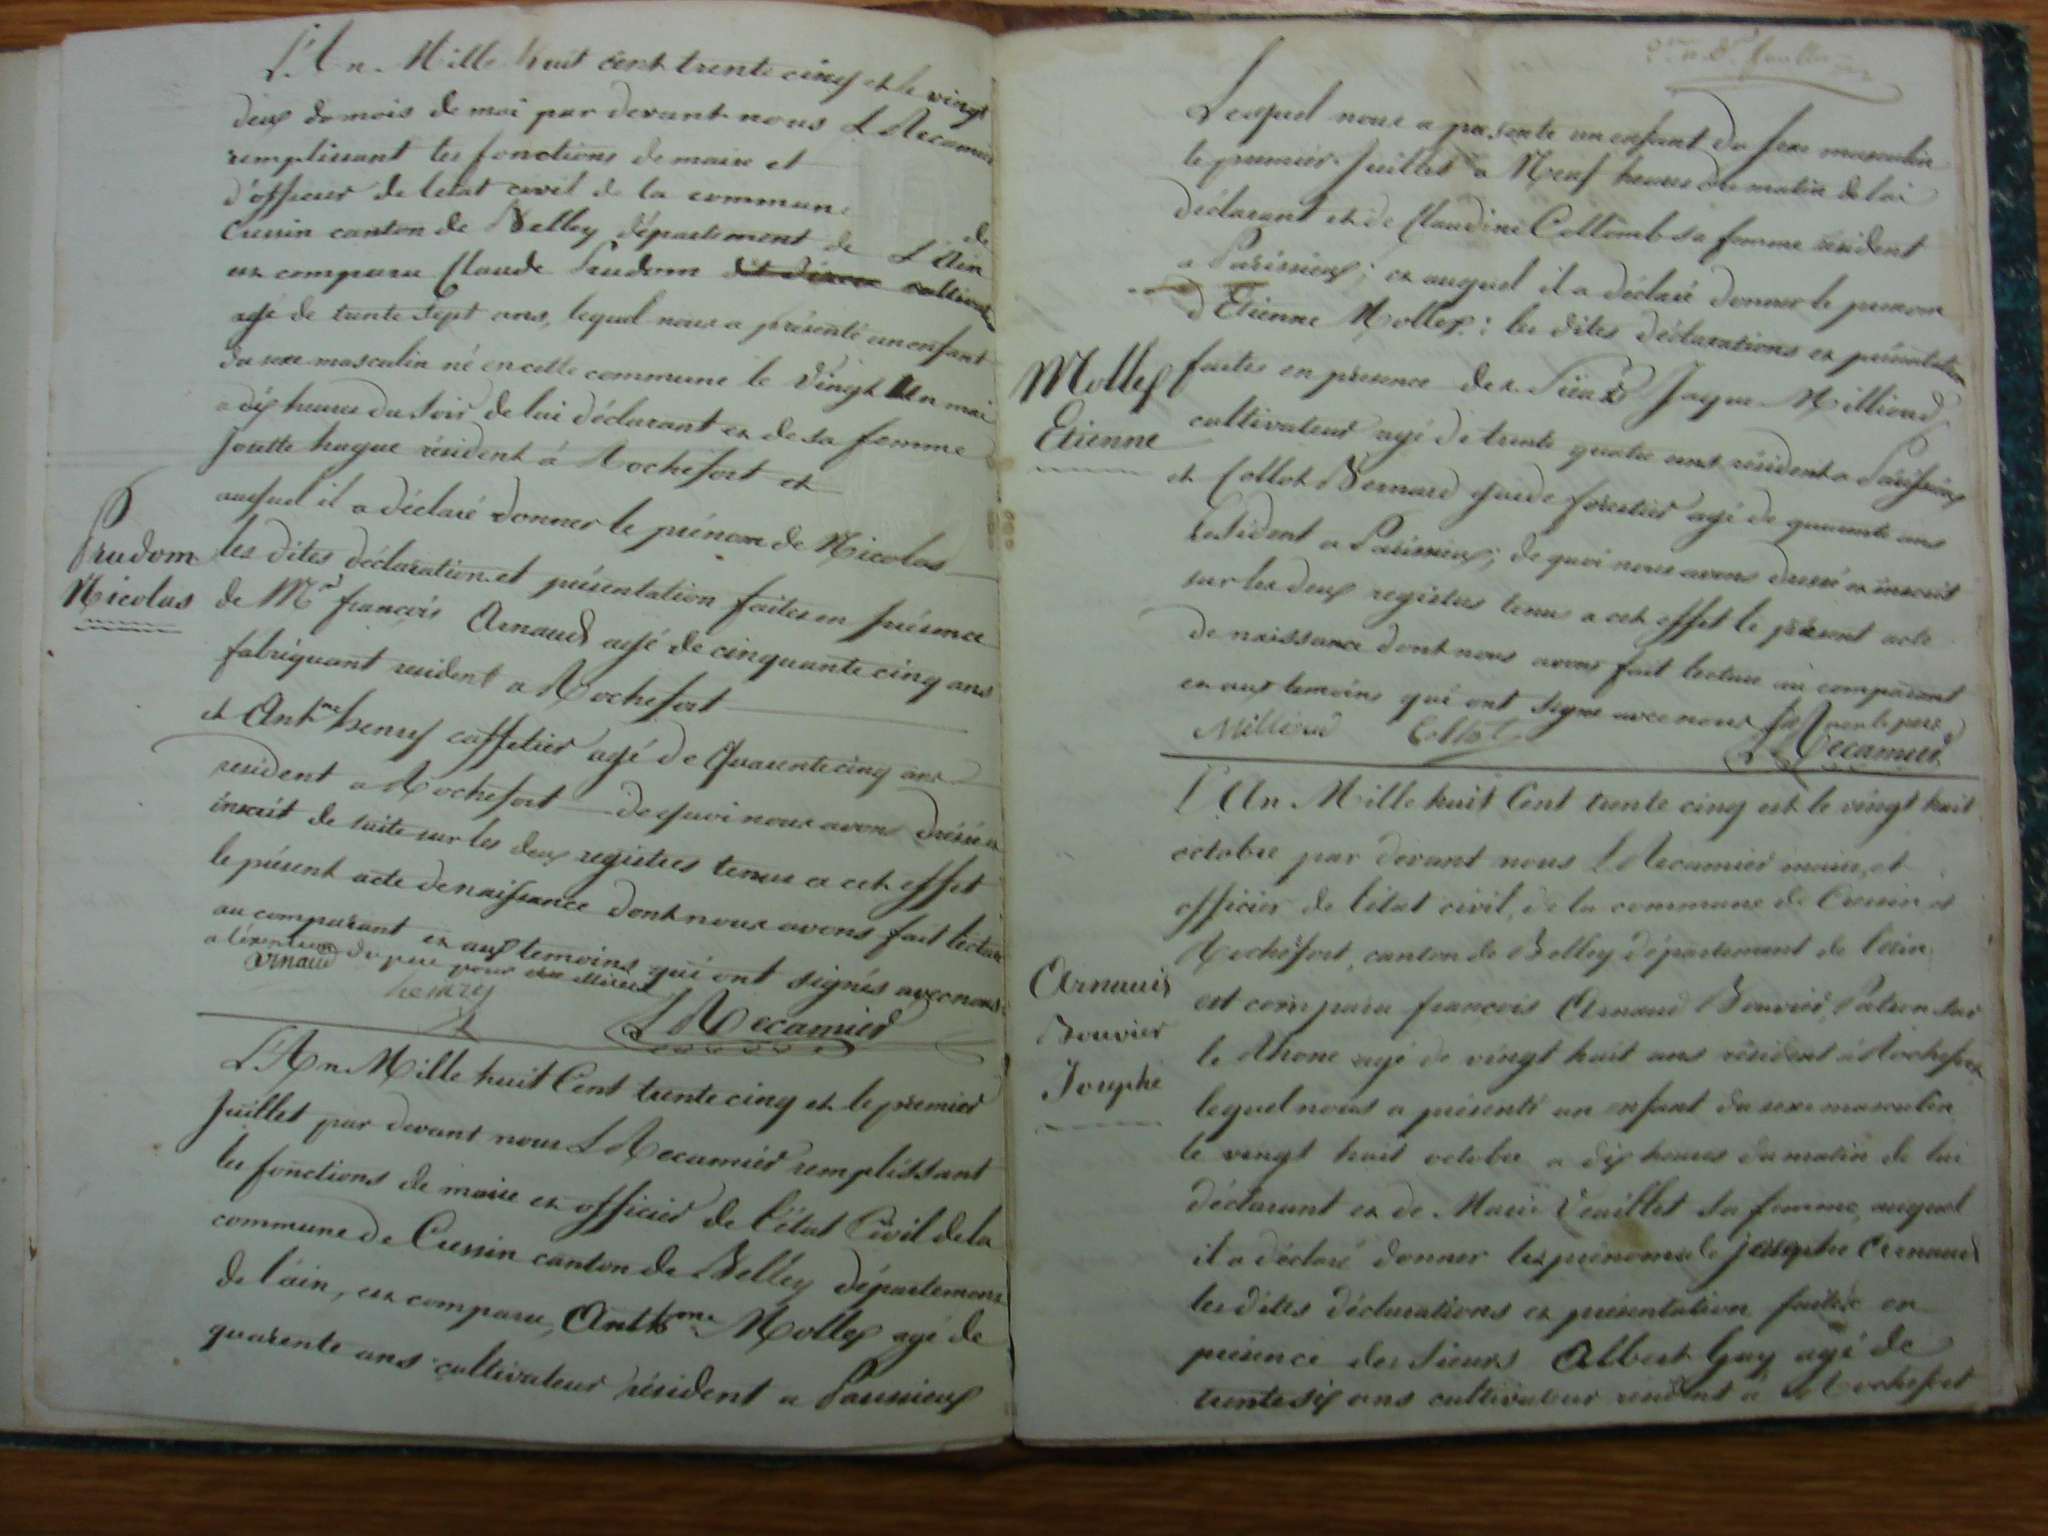 L'An Mille huit cent trente cinq et le vingt
deux du mois de mai par devant nous L Recamier
remplissant les fonctions de maire et
d'officier de letat civil de la commune de
Cressin canton de Belley département de L'Ain
est comparu Claude Prudom cultivateur
agé de trente sept ans, lequel nous a présenté un enfant
du sexe masculin né en cette commune le vingt un mai
a dix heures du soir de lui déclarant et de sa femme
Josette hugue résident à Rochefort et
auquel il a déclaré donner le prénom de Nicolas
Prudom
Nicolas
les dites déclaration et présentation faites en présence
de Mr françois Arnaud agé de cinquante cinq ans
fabriquant resident a Rochefort
et Antme henry caffetier agé de Quarente cinq ans
resident a Rochefort de quoi nous avons dréssé et
inscrit de suite sur les deux registres tenus a cet effet
le présent acte de naissance dont nous avons fait lecture
au comparant et aux temoins qui ont signés avec nous
a l'exeption du père pour
Arnaud henry L Recamier
L'An Mille huit Cent trente cinq et le premier
Juillet par devant nous L Recamier remplissant
les fonctions de maire et officier de l'état Civil de la
commune de Cressin canton de Belley département
de l'ain, est comparu, Anthme Mollex agé de
quarente ans cultivateur résident a Parissieux
Lequel nous a présenté un enfant du sexe masculin
le premier Juillet a Neuf heures du matin de lui
déclarant et de Claudine Collomb sa femme résident
a Parissieux; et auquel il a déclaré donner le prenom
d'Etienne Mollex: les dites déclarations et présentation
Mollex
Etienne
faites en présence des Sieurs Jaque Milliend
cultivateur agé de trente quatre ans résident a Parissieux
et Collot Bernard garde forestier agé de quarente ans
resident a Parissieux; de quoi nous avons dressé et inscrit
sur les deux registres tenus a cet effet le présent acte
de naissance dont nous avons fait lecture au comparant
et aux temoins qui ont signé avec nous non le pere
Milliend Collot L Recamier
L'An Mille huit Cent trente cinq est le vingt huit
octobre par devant nous L Recamier maire, et
officier de l'état civil, de la commune de Cressin et
Rochefort, canton de Belley département de l'ain
est comparu francois Arnaud Bouvier, Patron sur
le Rhone agé de vingt huit ans résident à Rochefort
Arnaud
Bouvier
Josephe
lequel nous a présenté un enfant du sexe masculin
le vingt huit octobre a dix heures du matin de lui
déclarant et de Marie Veuillet sa femme, auquel
il a déclaré donner les prénoms de josephe Arnaud
les dites déclarations et présentation faites en
présence des Sieurs Albert Guy agé de
trente six ans cultivateur resident à Rochefort